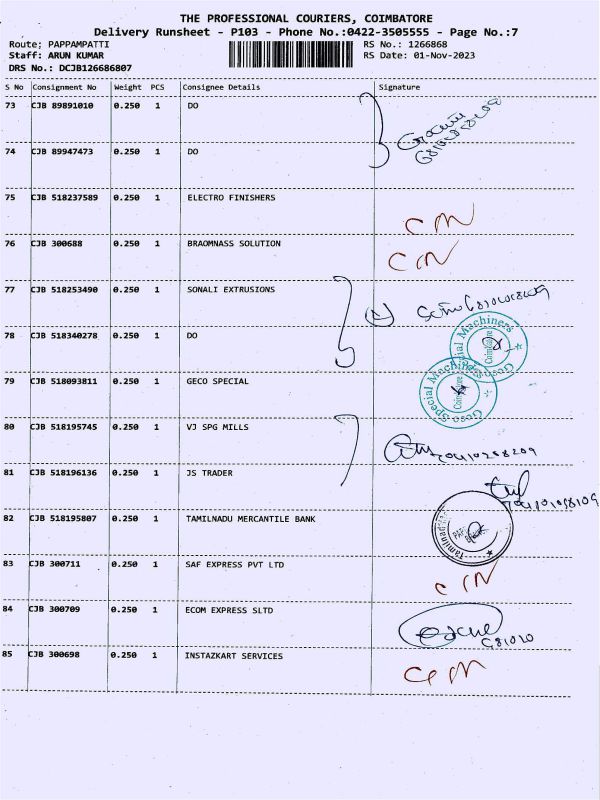 THE PROFESSIONAL COURIERS, COIMBATORE
Delivery Runsheet - P103 - Phone No.:0422-3505555 - Page No.:7
Route; PAPPAMPATTI RS No.: 1266868
Staff: ARUN KUMAR RS Date: 01-Nov-2023
DRS No.: DCJB126686807
S No Consignment No Weight PCS Consignee Details Signature
73 CJB 89891010 0.250 1 DO
74 CJB 89947473 0.250 1 DO
75 CJB 518237589 0.250 1 ELECTRO FINISHERS
76 CJB 300688 0.250 1 BRAOMNASS SOLUTION
77 CJB 518253490 0.250 1 SONALI EXTRUSIONS
78 CJB 518340278 0.250 1 DO
Geco Special Machiners
Coimbatore
79 CJB 518093811 0.250 1 GECO SPECIAL
Geco Special Machiners
Coimbatore
80 CJB 518195745 0.250 1 VJ SPG MILLS
81 CJB 518196136 0.250 1 JS TRADER
82 CJB 518195807 0.250 1 TAMILNADU MERCANTILE BANK
83 CJB 300711 0.250 1 SAF EXPRESS PVT LTD
84 CJB 300709 0.250 1 ECOM EXPRESS SLTD
85 CJB 300698 0.250 1 INSTAZKART SERVICES